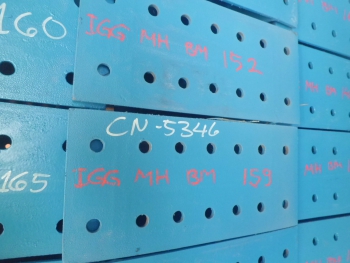 160
IGG MH BM 152
CN-5346
165
IGG MH BM 159